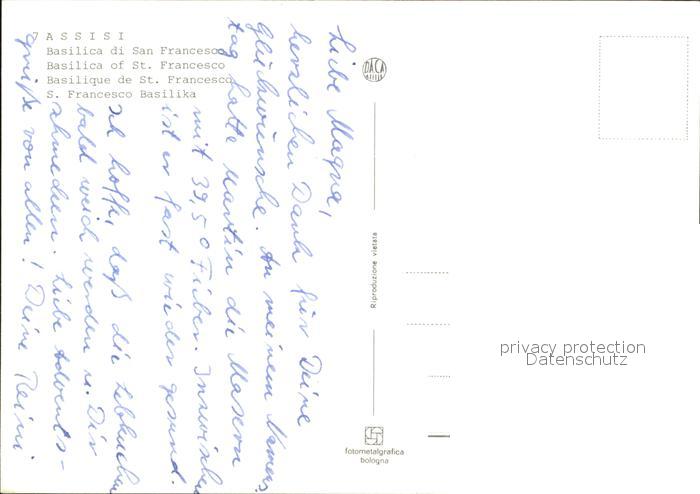 7 ASSISI
Basilica di San Francesco
Basilica of St. Francesco
Basilique de St. Francesco
S. Francesco Basilika
Liebe Magna,
herzlichen Dank für Deine
Glückwünsche. An meinem Namens
tag hatte Martin die Masern
mit 39,5° Fieber. Inzwischen
ist er fast wieder gesund.
Ich hoffe, daß die Lebkuchen
bald weich werden u. Dir
schmecken. Liebe Advents-
grüße von allen! Deine Reini
DACA
Riproduzione vietata
fotometalgrafica
bologna
privacy protection
Datenschutz